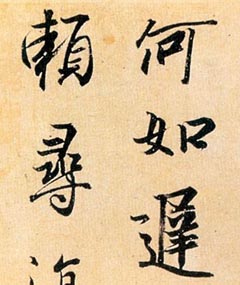 何如遲
頼尋